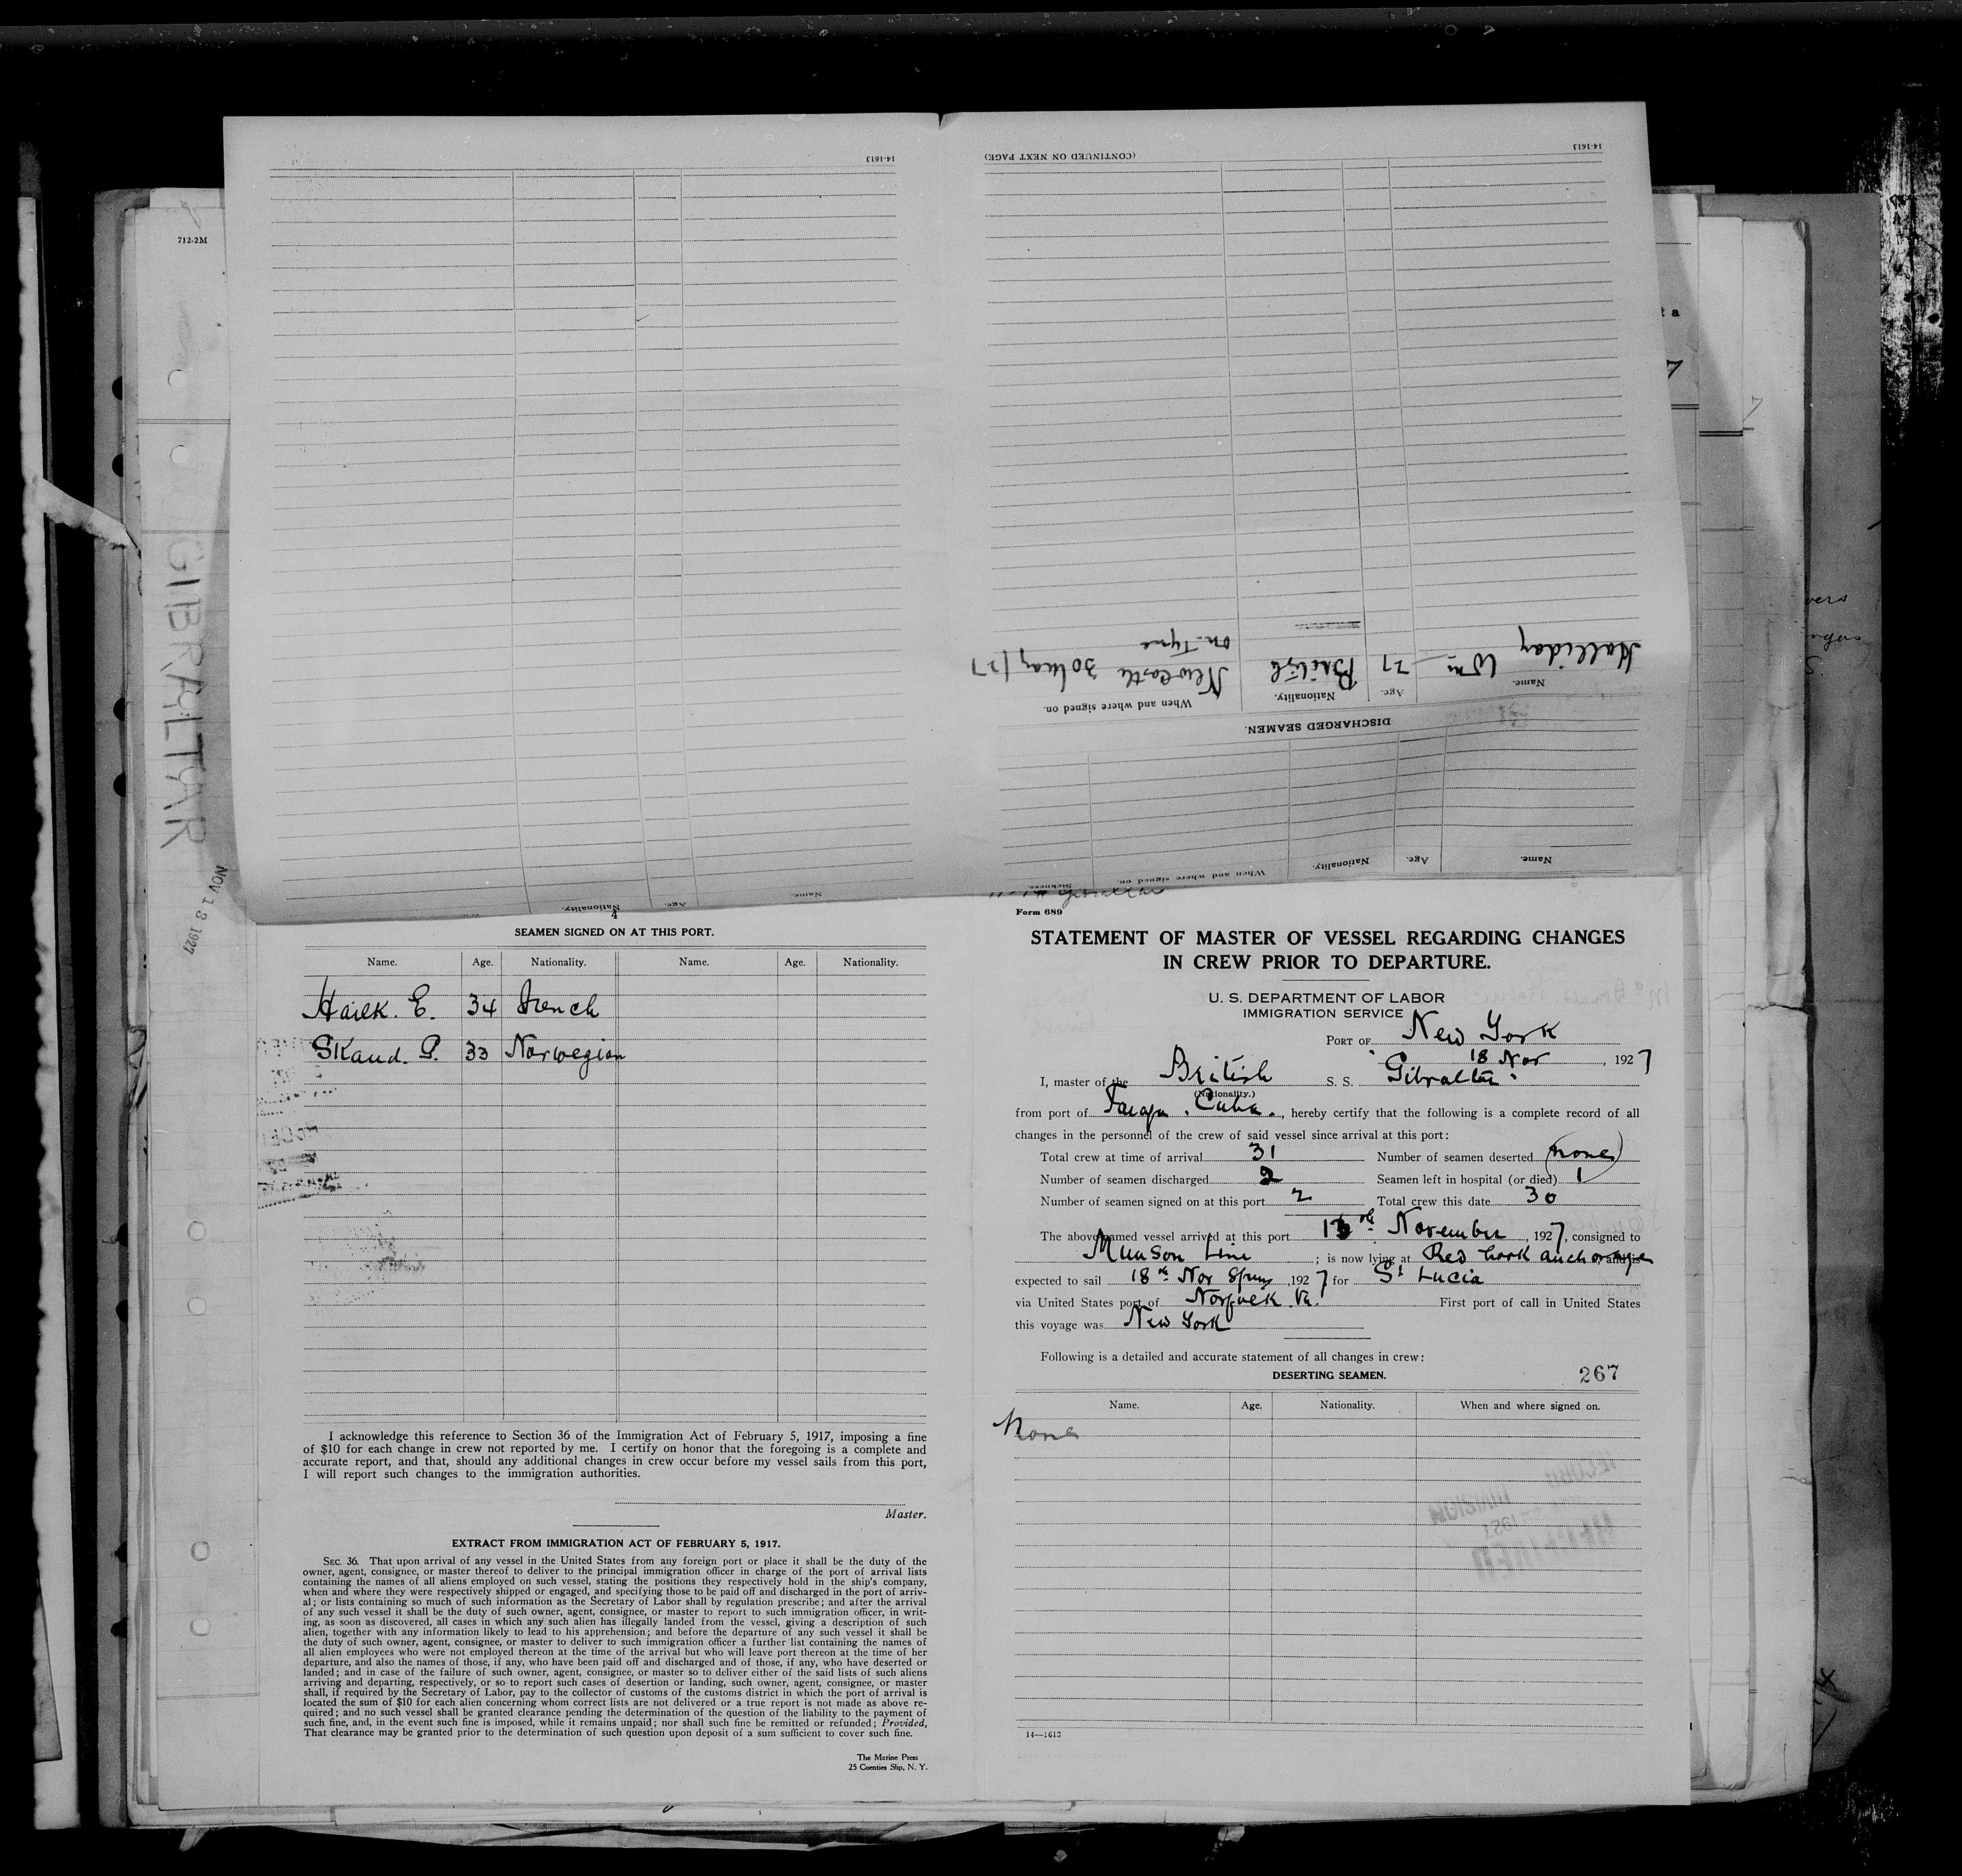 14-1613
(CONTINUED ON NEXT PAGE)
14-1613
712-2M
GIBRALTAR
NOV 13 1927
Halliday Wm 27 British Newcastle 30 May/27
on-Tyne
Name. Age. Nationality. When and where signed on.
DISCHARGED SEAMEN.
Name. Age. Nationality. When and where signed on. Sickness.
Name. Age. Nationality.
4
SEAMEN SIGNED ON AT THIS PORT.
Name. Age. Nationality. Name. Age. Nationality.
Hailk. E. 34 French
Skaud. P. 33 Norwegian
I acknowledge this reference to Section 36 of the Immigration Act of February 5, 1917, imposing a fine
of $10 for each change in crew not reported by me. I certify on honor that the foregoing is a complete and
accurate report, and that, should any additional changes in crew occur before my vessel sails from this port,
I will report such changes to the immigration authorities.
Master.
EXTRACT FROM IMMIGRATION ACT OF FEBRUARY 5, 1917.
SEC. 36. That upon arrival of any vessel in the United States from any foreign port or place it shall be the duty of the
owner, agent, consignee, or master thereof to deliver to the principal immigration officer in charge of the port of arrival lists
containing the names of all aliens employed on such vessel, stating the positions they respectively hold in the ship's company,
when and where they were respectively shipped or engaged, and specifying those to be paid off and discharged in the port of arriv-
al; or lists containing so much of such information as the Secretary of Labor shall by regulation prescribe; and after the arrival
of any such vessel it shall be the duty of such owner, agent, consignee, or master to report to such immigration officer, in writ-
ing, as soon as discovered, all cases in which any such alien has illegally landed from the vessel, giving a description of such
alien, together with any information likely to lead to his apprehension; and before the departure of any such vessel it shall be
the duty of such owner, agent, consignee, or master to deliver to such immigration officer a further list containing the names of
all alien employees who were not employed thereon at the time of the arrival but who will leave port thereon at the time of her
departure, and also the names of those, if any, who have been paid off and discharged and of those, if any, who have deserted or
landed; and in case of the failure of such owner, agent, consignee, or master so to deliver either of the said lists of such aliens
arriving and departing, respectively, or so to report such cases of desertion or landing, such owner, agent, consignee, or master
shall, if required by the Secretary of Labor, pay to the collector of customs of the customs district in which the port of arrival is
located the sum of $10 for each alien concerning whom correct lists are not delivered or a true report is not made as above re-
quired; and no such vessel shall be granted clearance pending the determination of the question of the liability to the payment of
such fine, and, in the event such fine is imposed, while it remains unpaid; nor shall such fine be remitted or refunded; Provided,
That clearance may be granted prior to the determination of such question upon deposit of a sum sufficient to cover such fine.
The Marine Press
25 Coenties Slip, N. Y.
Form 689
STATEMENT OF MASTER OF VESSEL REGARDING CHANGES
IN CREW PRIOR TO DEPARTURE.
U. S. DEPARTMENT OF LABOR
IMMIGRATION SERVICE
PORT OF New York
18 Nov, 1927
I, master of the British S. S. Gibraltar
(Nationality.)
from port of Cuba., hereby certify that the following is a complete record of all
changes in the personnel of the crew of said vessel since arrival at this port:
Total crew at time of arrival 31 Number of seamen deserted (none)
Number of seamen discharged 2 Seamen left in hospital (or died) 1
Number of seamen signed on at this port 2 Total crew this date 30
The above-named vessel arrived at this port 13th November, 1927, consigned to
Munson Line; is now lying at Red hook anchorage, and is
expected to sail 18th Nov 5pm, 1927 for St Lucia
via United States port of Norfolk Va. First port of call in United States
this voyage was New York
Following is a detailed and accurate statement of all changes in crew:
DESERTING SEAMEN. 267
Name. Age. Nationality. When and where signed on.
None
14—1613